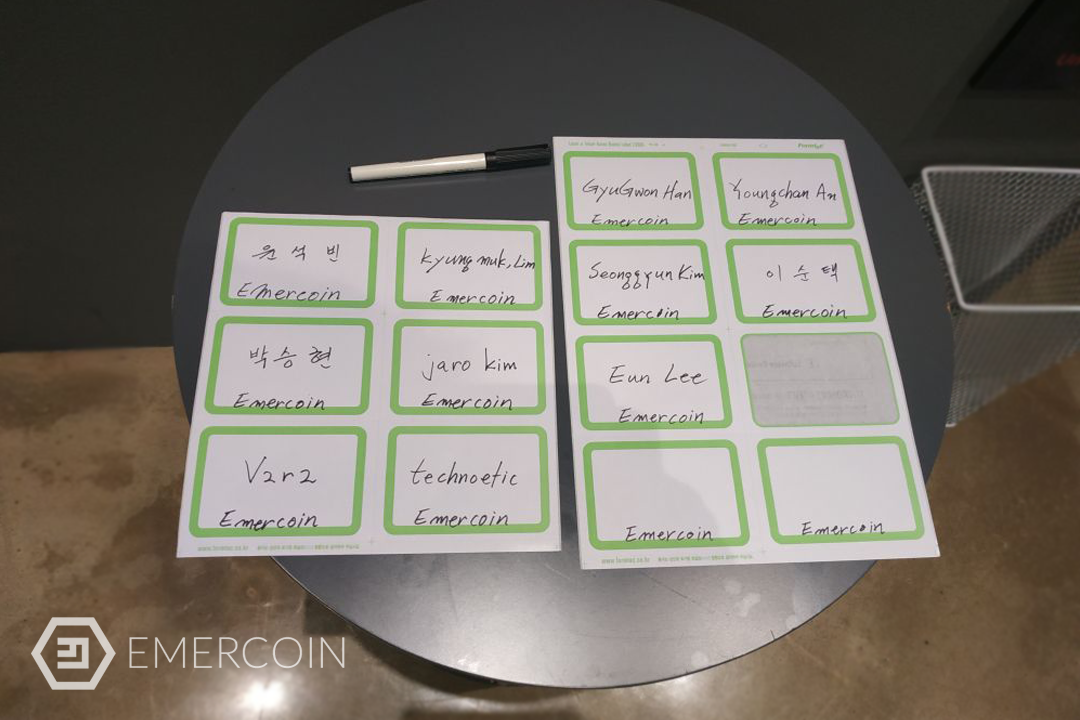 원 석 빈
Emercoin
Kyung muk, Lim
Emercoin
박 승 현
Emercoin
jaro kim
Emercoin
V2r2
Emercoin
technoetic
Emercoin
www.formtec.co.kr
GyuGwon Han
Emercoin
Youngchan An
Emercoin
Seonggyun Kim
Emercoin
이 순 택
Emercoin
Eun Lee
Emercoin
Emercoin
Emercoin
www.formtec.co.kr
EMERCOIN